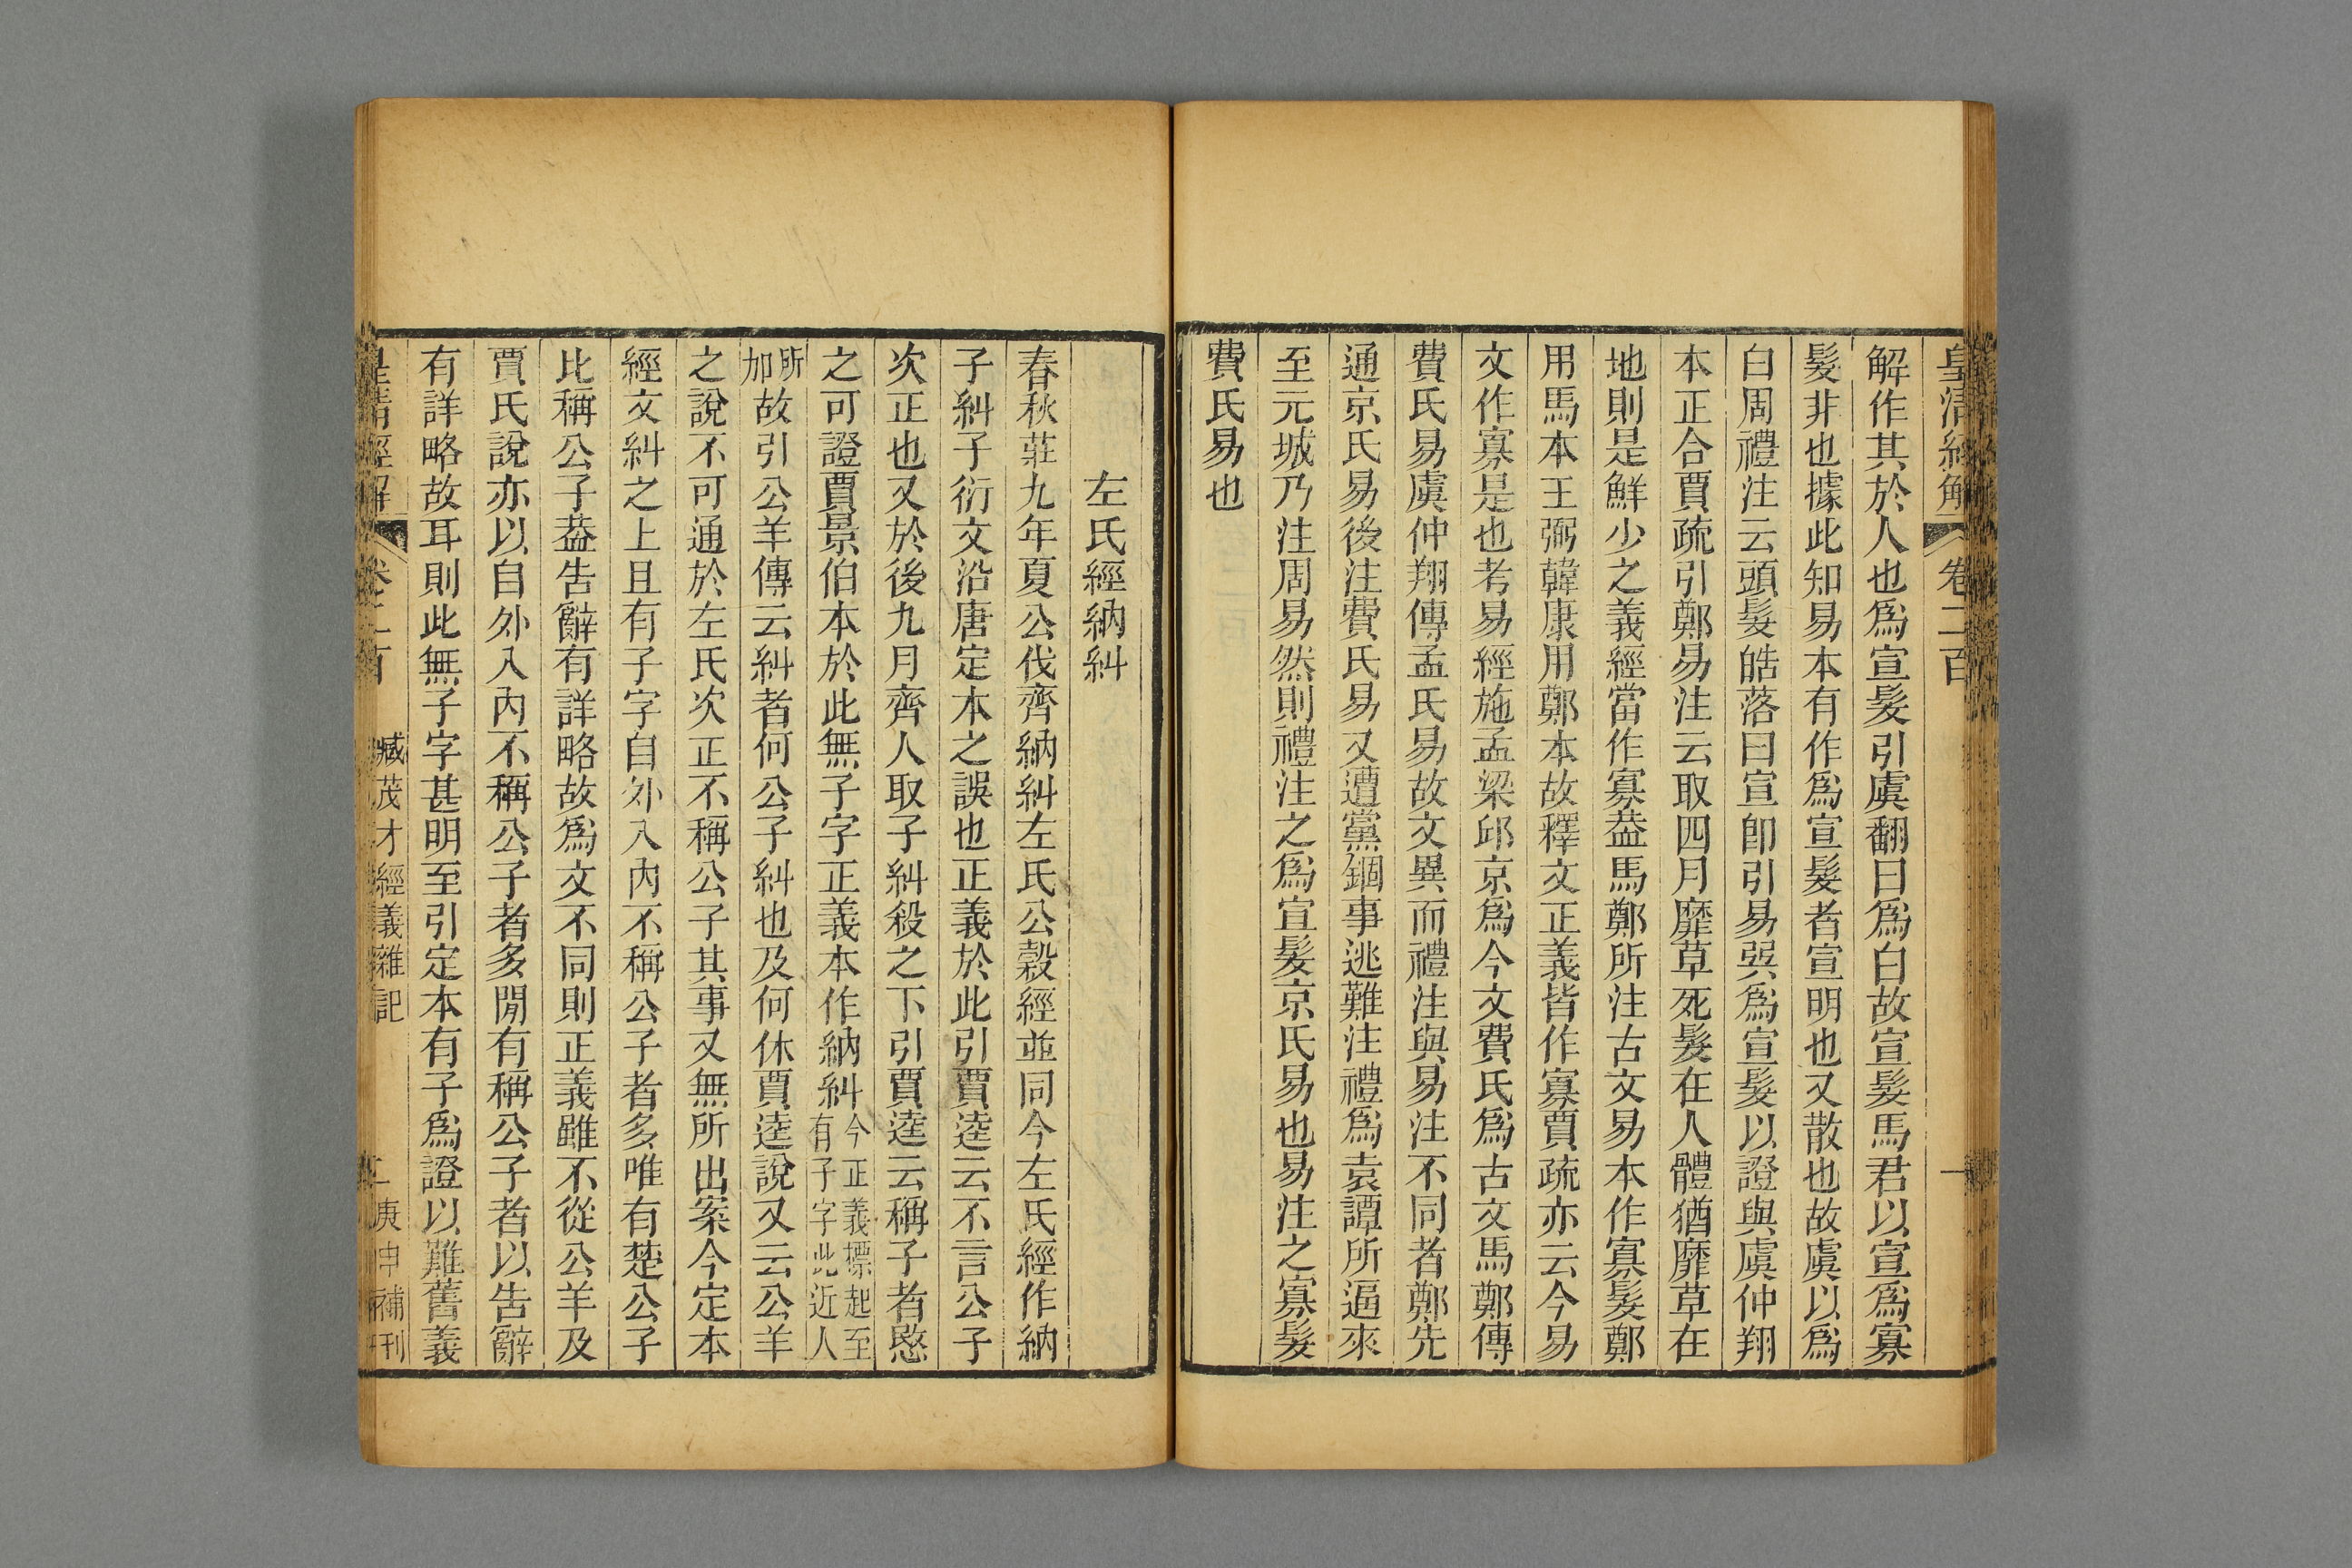 皇清經解 卷二百 一
解作其於人也爲宣髮引虞翻曰爲白故宣髮馬君以宣爲寡
髮非也據此知易本有作爲宣髮者宣明也又散也故虞以爲
白周禮注云頭髮皓落曰宣卽引易巽爲宣髮以證與虞仲翔
本正合賈疏引鄭易注云取四月靡草死髮在人體猶靡草在
地則是鮮少之義經當作寡葢馬鄭所注古文易本作寡髮鄭
用馬本王弼韓康用鄭本故釋文正義皆作寡賈疏亦云今易
文作寡是也考易經施孟梁邱京爲今文費氏爲古文馬鄭傳
費氏易虞仲翔傳孟氏易故文異而禮注與易注不同者鄭先
通京氏易後注費氏易又遭黨錮事逃難注禮爲袁譚所逼來
至元城乃注周易然則禮注之爲宣髮京氏易也易注之寡髮
費氏易也
左氏經納糾
春秋莊九年夏公伐齊納糾左氏公穀經並同今左氏經作納
子糾子衍文沿唐定本之誤也正義於此引賈逵云不言公子
次正也又於後九月齊人取子糾殺之下引賈逵云稱子者愍
之可證賈景伯本於此無子字正義本作納糾今正義標起至有子字此近人
所加故引公羊傳云糾者何公子糾也及何休賈逵說又云公羊
之說不可通於左氏次正不稱公子其事又無所出案今定本
經文糾之上且有子字自外入內不稱公子者多唯有楚公子
比稱公子葢告辭有詳略故爲文不同則正義雖不從公羊及
賈氏說亦以自外入內不稱公子者多閒有稱公子者以告辭
有詳略故耳則此無子字甚明至引定本有子爲證以難舊義
皇清經解 卷二百 臧茂才經義雜記 二 庚申補刊